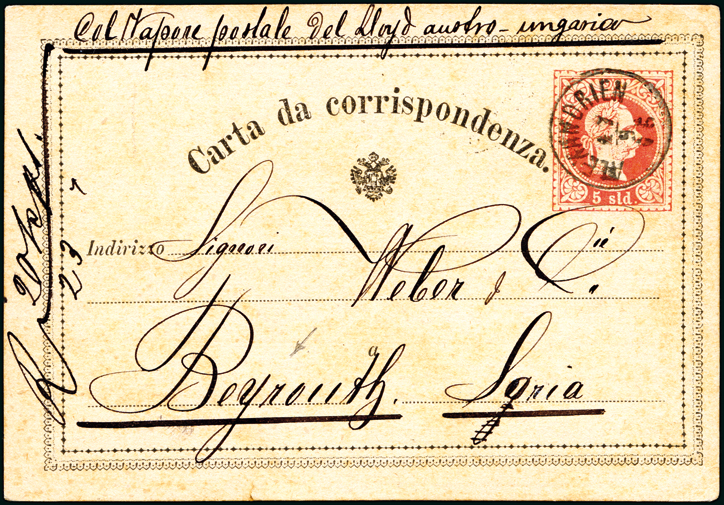 Col Vapore postale del Lloyd austro-ungarico
Carta da corrispondenza.
ALEXANDRIEN
5 sld.
Indirizzo Signori
Weber & Cie
a
Beyrouth. Syria
R 20
23